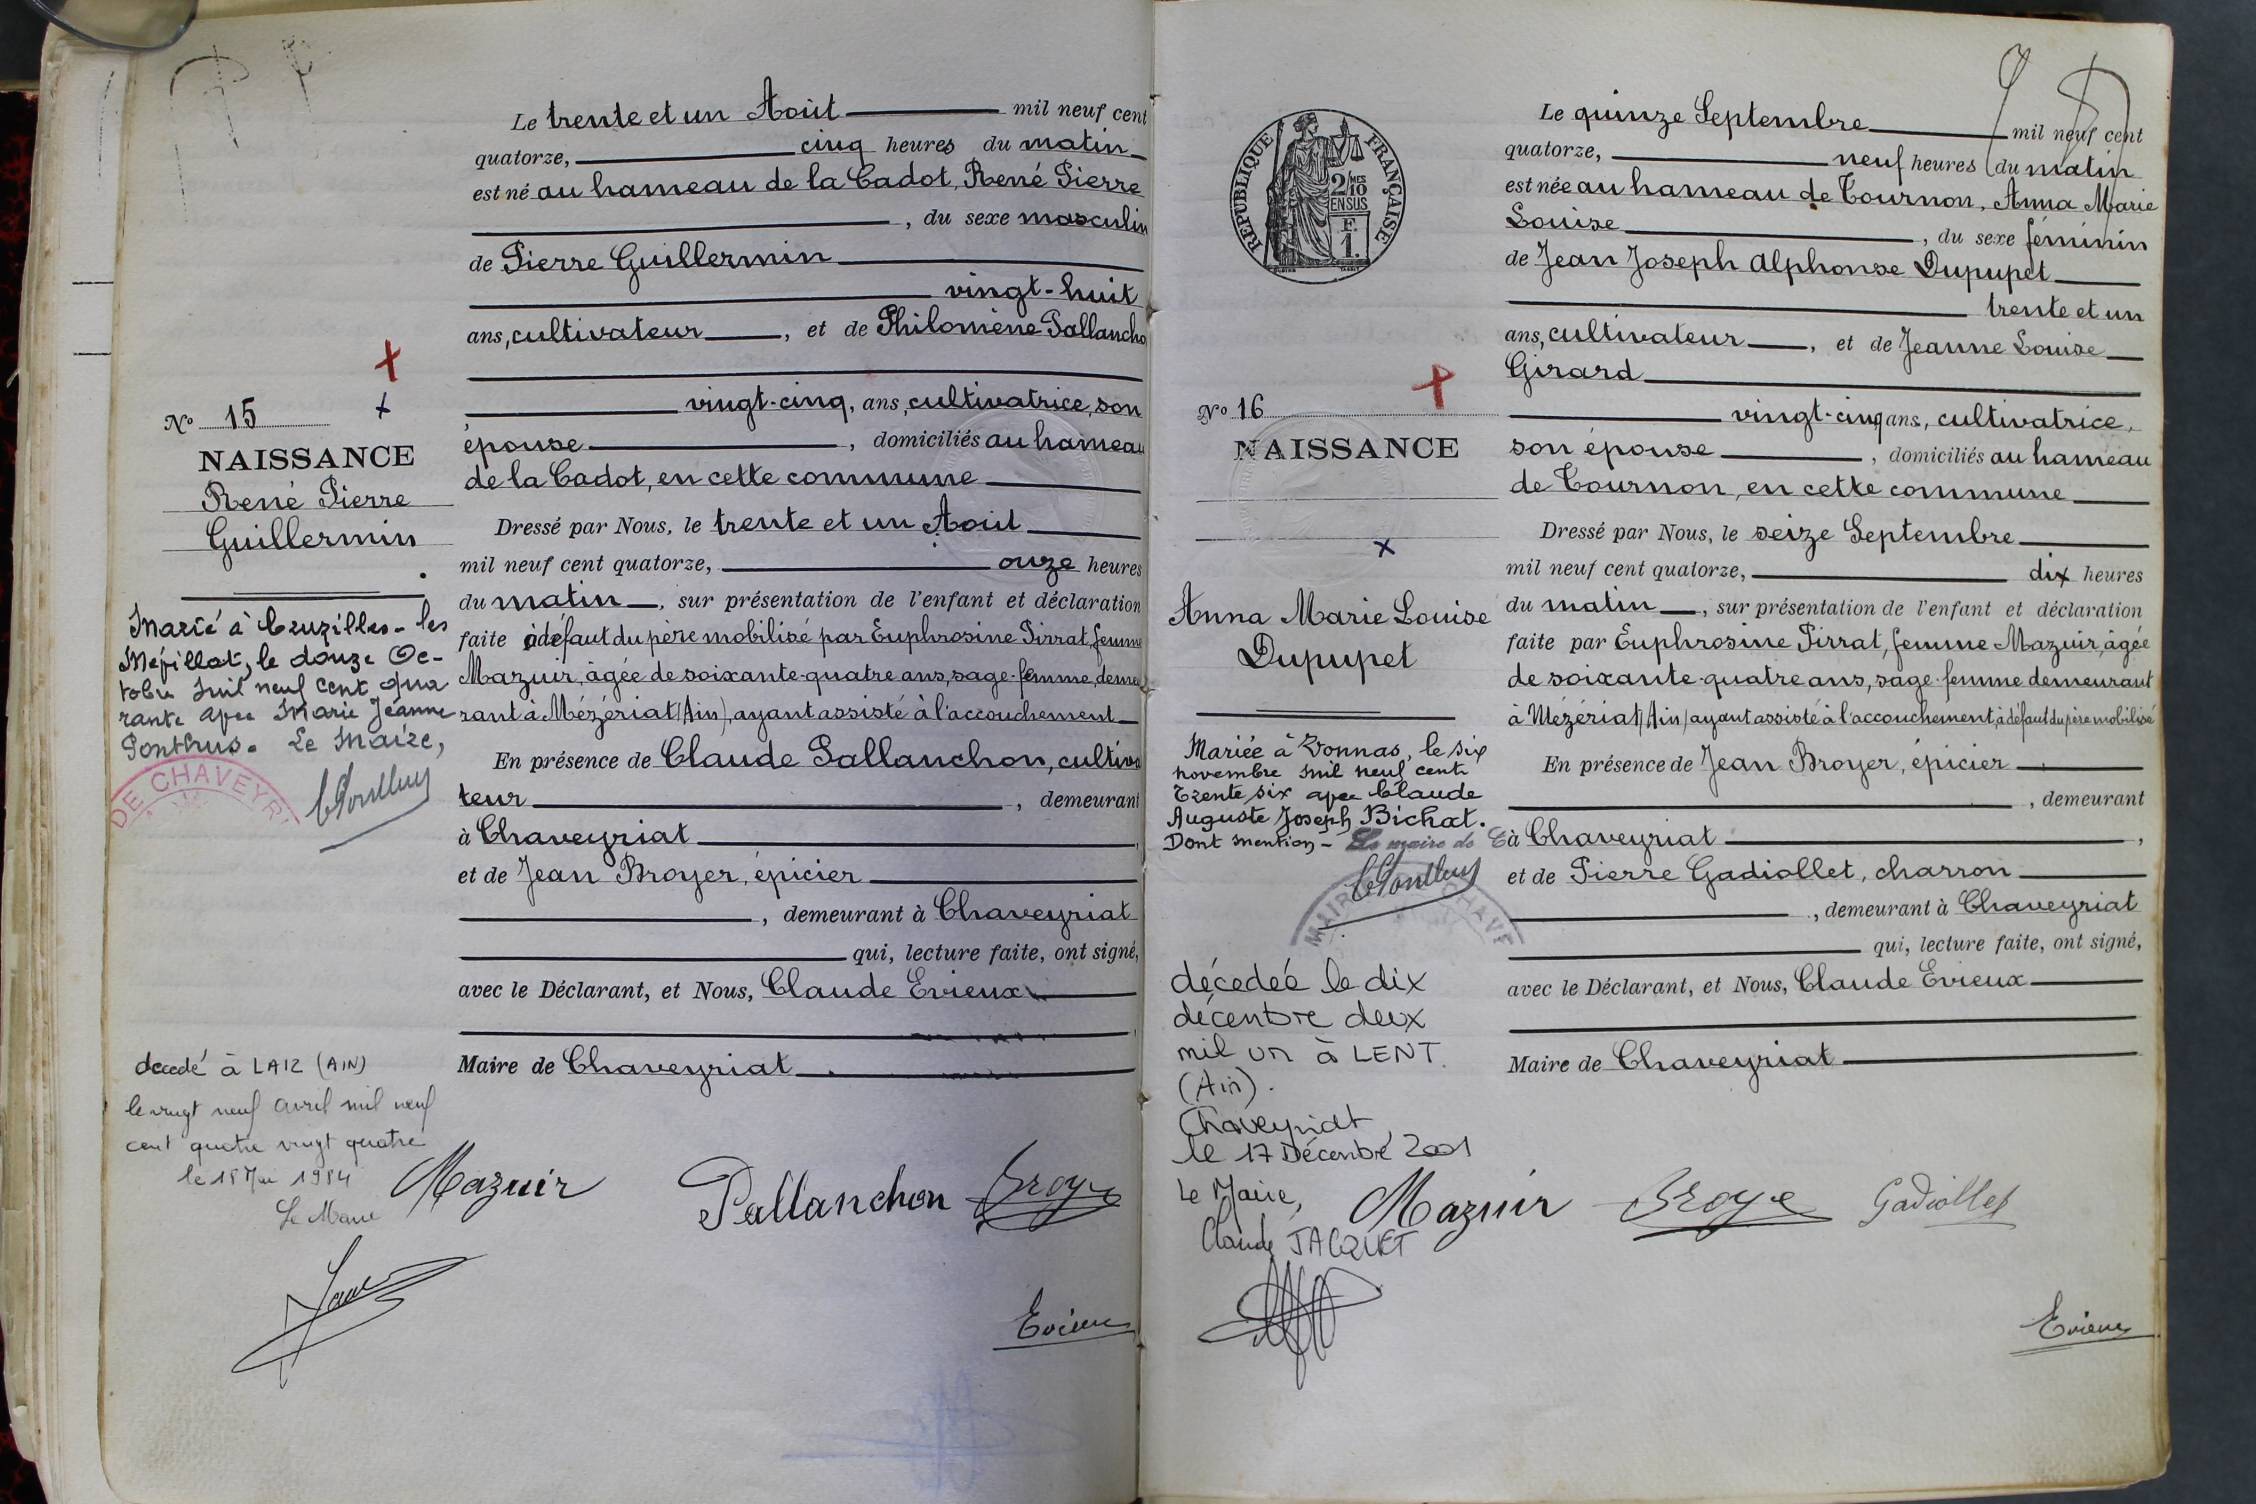 Le trente et un Août mil neuf cent
quatorze, cinq heures du matin
est né au hameau de la Cadot, René Pierre
, du sexe masculin
de Pierre Guillermin
vingt-huit
ans, cultivateur, et de Philomène Pallancho
vingt-cinq, ans, cultivatrice, son
épouse, domiciliés au hameau
de la Cadot, en cette commune
Dressé par Nous, le trente et un Août
mil neuf cent quatorze, onze heures
du matin, sur présentation de l'enfant et déclaration
faite à défaut du père mobilisé par Euphrosine Pirrat, femme
Mazuir, âgée de soixante-quatre ans, sage-femme, demeu
rant à Mézériat (Ain), ayant assisté à l'accouchement
En présence de Claude Pallanchon, cultiva
teur, demeurant
à Chaveyriat,
et de Jean Broyer, épicier
, demeurant à Chaveyriat
qui, lecture faite, ont signé,
avec le Déclarant, et Nous, Claude Evieux
Maire de Chaveyriat
Mazuir Pallanchon Broye
Evieux
No 15
NAISSANCE
René Pierre
Guillermin
Marié à Cruzilles-les
Mépillat, le douze Oc-
tobre mil neuf cent qua
rante avec Marie Jeanne
Ponthus. Le Maire,
DE CHAVEYR
décedé à LAIZ (AIN)
le vingt neuf avril mil neuf
cent quatre vingt quatre
le 18 Mai 1984
Le Maire
RÉPUBLIQUE FRANÇAISE
2/10 MES
EN SUS
F.
1.
Le quinze Septembre mil neuf cent
quatorze, neuf heures du matin
est née au hameau de Tournon, Anna Marie
Louise, du sexe féminin
de Jean Joseph Alphonse Dupupet
trente et un
ans, cultivateur, et de Jeanne Louise
Girard
vingt-cinq ans, cultivatrice,
son épouse, domiciliés au hameau
de Tournon, en cette commune
Dressé par Nous, le seize Septembre
mil neuf cent quatorze, dix heures
du matin, sur présentation de l'enfant et déclaration
faite par Euphrosine Pirrat, femme Mazuir, âgée
de soixante-quatre ans, sage-femme demeurant
à Mézériat (Ain) ayant assisté à l'accouchement, à défaut du père mobilisé
En présence de Jean Broyer, épicier
, demeurant
à Chaveyriat,
et de Pierre Gadiollet, charron
, demeurant à Chaveyriat
qui, lecture faite, ont signé,
avec le Déclarant, et Nous, Claude Evieux
Maire de Chaveyriat
Mazuir Broye Gadiollet
Evieux
No 16
NAISSANCE
Anna Marie Louise
Dupupet
Mariée à Vonnas, le six
novembre mil neuf cent
trente six avec Claude
Auguste Joseph Bichat.
Dont mention - Le maire de C
MAIRI CHAVE
décedeé le dix
décembre deux
mil un à LENT.
(Ain).
Chaveyriat
le 17 Décembre 2001
Le Maire,
Claude JACQUET